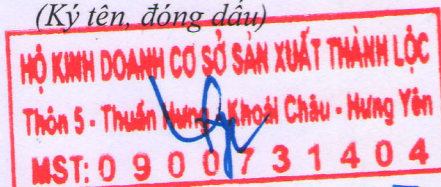 (Ký tên, đóng dấu)
HỘ KINH DOANH CƠ SỞ SẢN XUẤT THÀNH LỘC
Thôn 5 - Thuần Hưng - Khoái Châu - Hưng Yên
MST: 0900731404